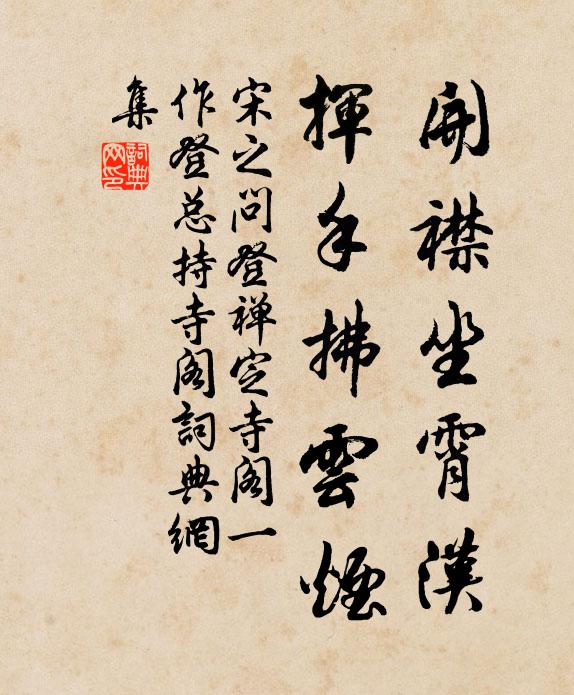 開襟坐霄漢
揮手拂雲煙
宋之問登禅定寺阁一
作登总持寺阁詞典網
集
詞典
网印